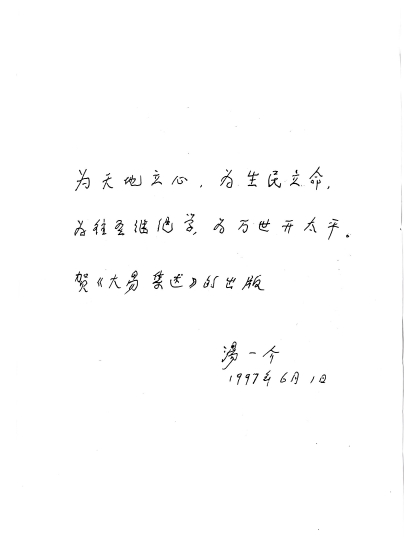 为天地立心，为生民立命，
为往圣继绝学，为万世开太平。
贺《大易集述》的出版
汤一介
1997年6月1日